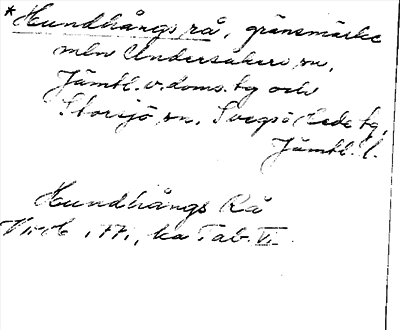 * Hundhångs rå, gränsmärke
mln Undersåkers sn,
Jämtl. v. doms. tg och
Storsjö sn, Svegs o Hede tg,
Jämtl. l.
Hundhångs Rå
177, ka Tab. VI.